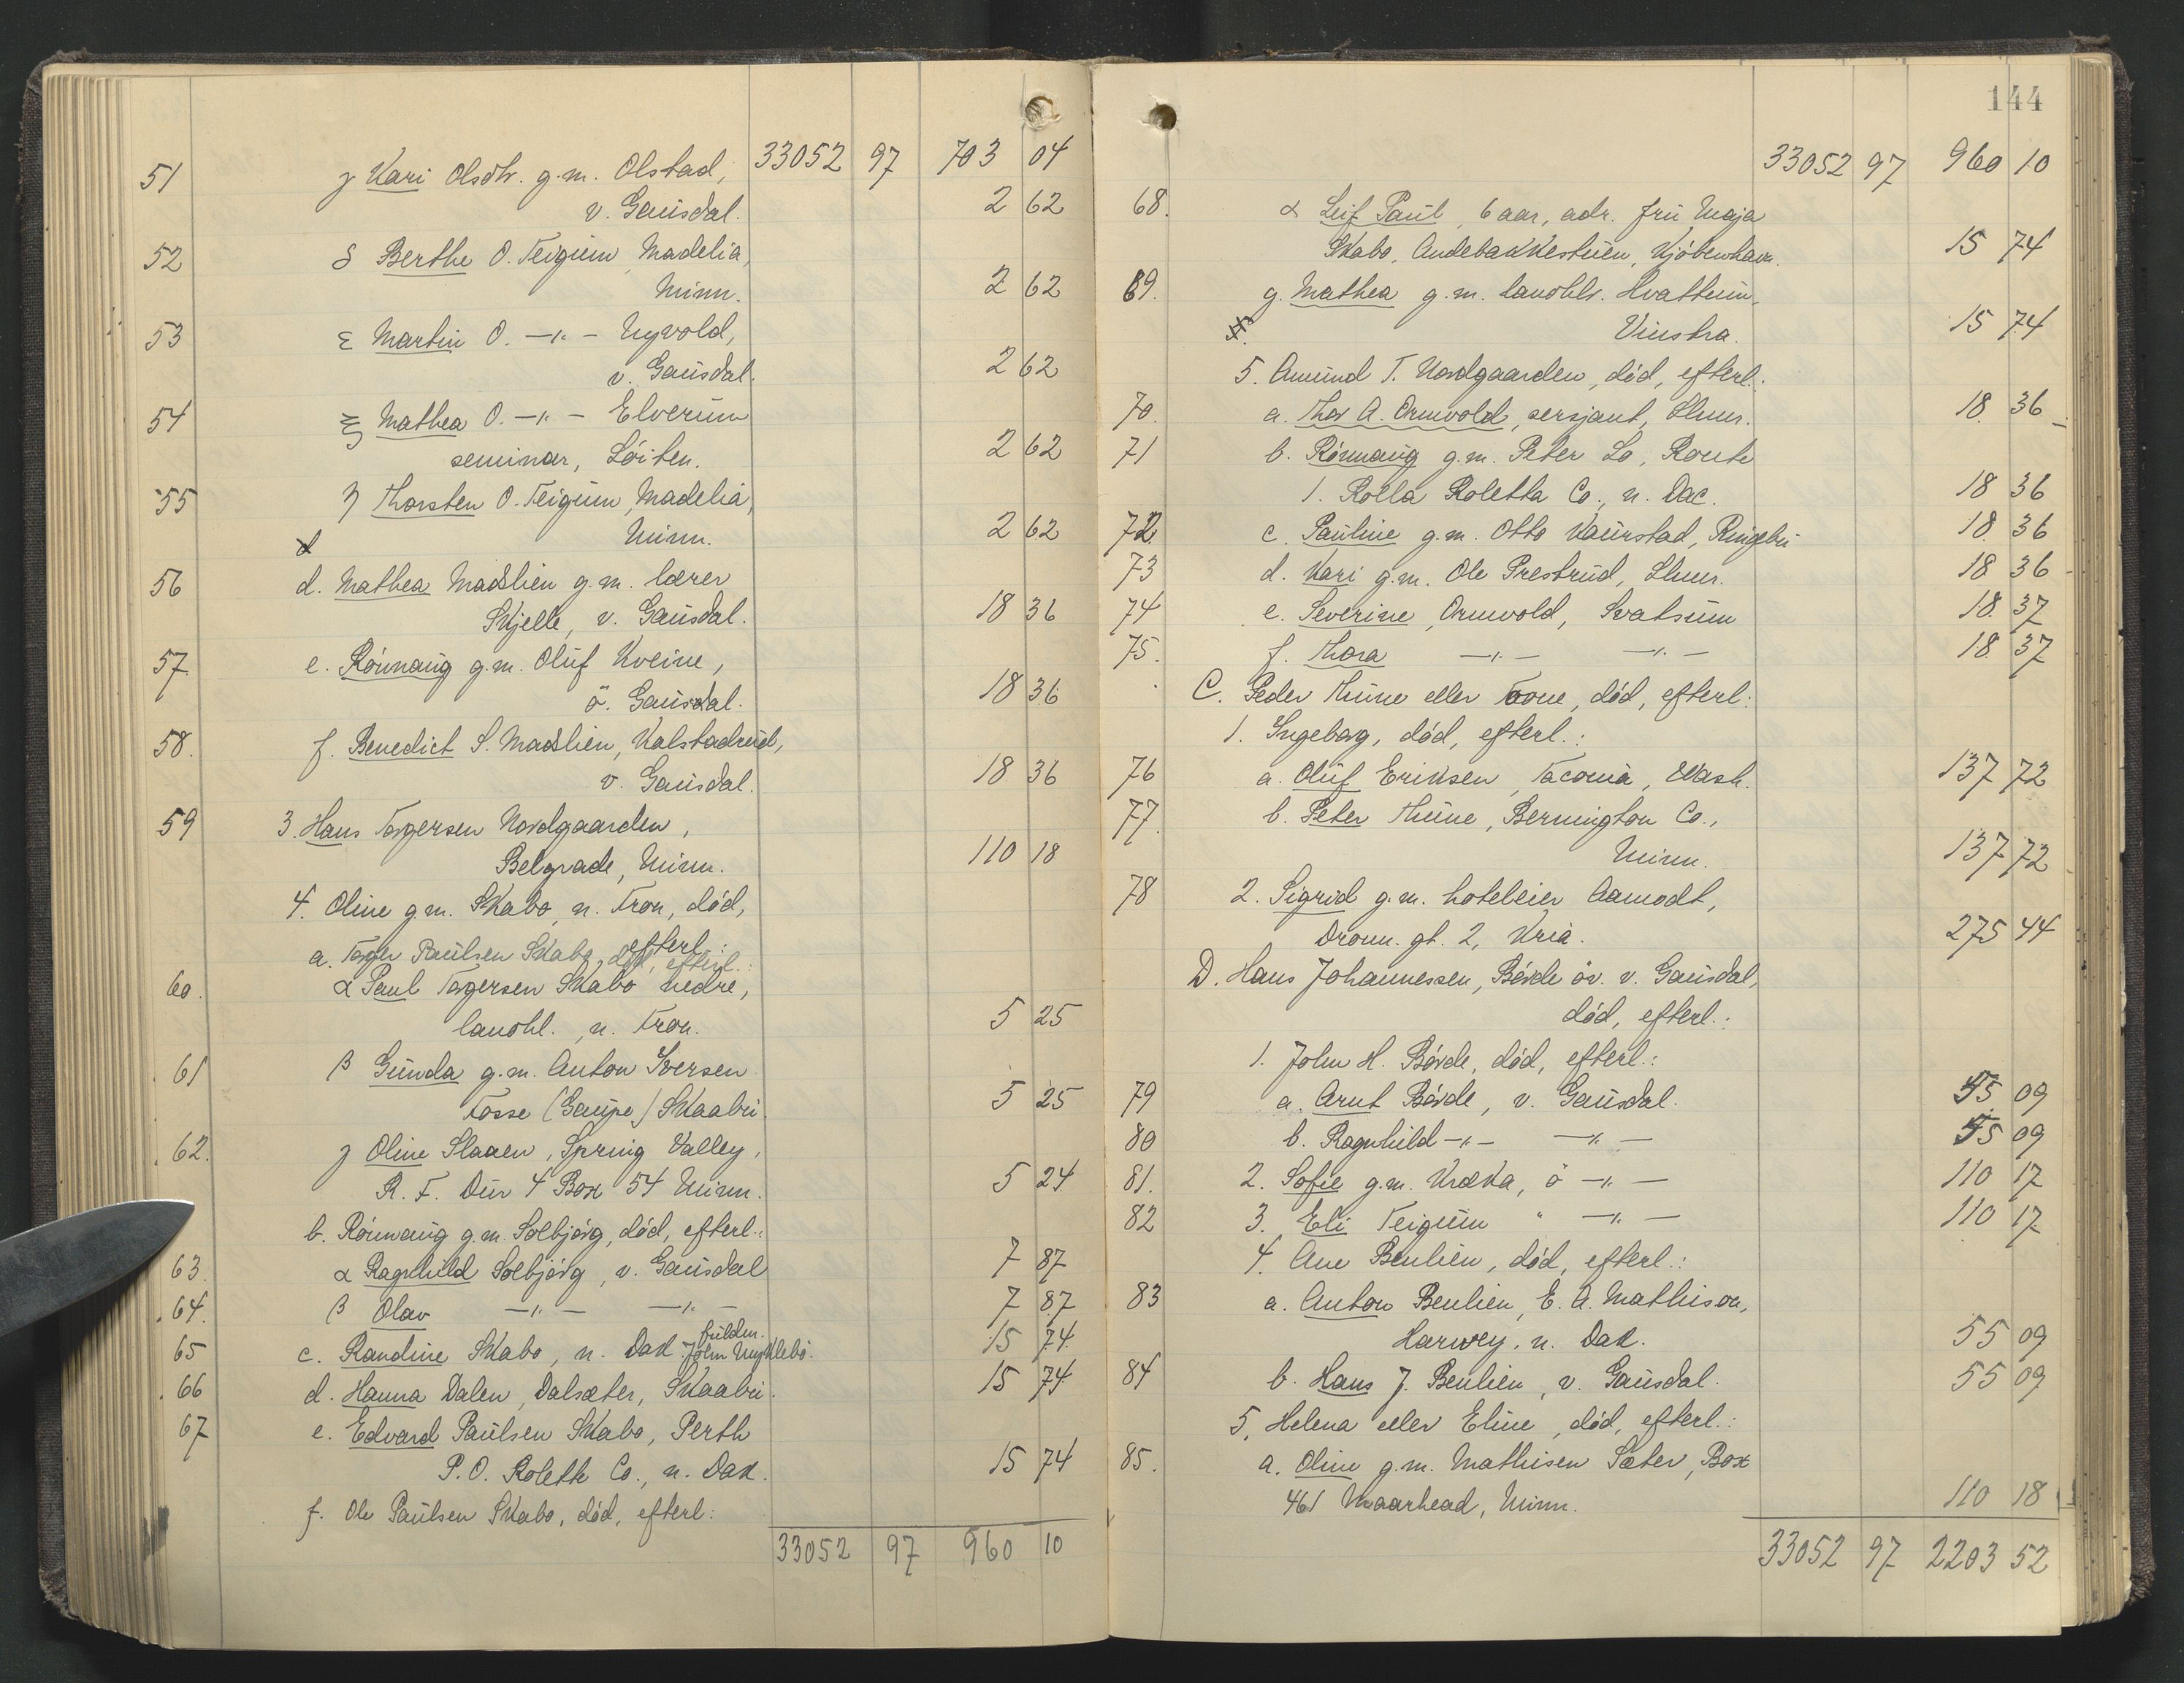 33052 97 703 04
51 γ Kari Olsdtr. g.m. Olstad,
v. Gausdal. 2 62
52 δ Berthe O. Teigum, Madelia,
Minn. 2 62
53 ε Martin O. -"- Nyvold,
v. Gausdal. 2 62
54 ξ Mathea O. -"- Elverum
seminar, Löiten. 2 62
55 η Thorsten O. Teigum, Madelia,
Minn. 2 62
56 d. Mathea Madslien g.m. lærer
Skjelle, v. Gausdal. 18 36
57 e. Rönnaug g.m. Oluf Kveine,
ö. Gausdal. 18 36
58. f. Benedict S. Madslien, Kalstadrud,
v. Gausdal. 18 36
59 3. Hans Torgersen Nordgaarden,
Belgrade, Minn. 110 18
4. Oline g.m. Skabo, n. Fron, död,
efterl.:
a. Torger Paulsen Skabo, död, efterl.:
60. α Paul Torgersen Skabo nedre,
landhl., n. Fron. 5 25
61 β Gunda g.m. Anton Iversen
Fosse (Gaupe) Skaabu. 5 25
62. γ Oline Slaaen, Spring Valley,
R. F. Div 4 Box 54 Minn. 5 24
b. Rönnaug g.m. Solbjörg, död, efterl.:
63. α Ragnhild Solbjörg, v. Gausdal 7 87
64. β Olav -"- -"- 7 87
fuldm.
65 c. Randine Skabo, n. Dak. John Nyklebö. 15 74
66 d. Hanna Dalen, Dalsæter, Skaabu. 15 74
67 e. Edvard Paulsen Skabo, Perth
P.O. Roleth Co., n. Dak. 15 74
f. Ole Paulsen Skabo, död, efterl:
33052 97 960 10
144
33052 97 960 10
68. α Leif Paul, 6 aar, adr. fru Maja
Skabo, Andebakkestien, Kjöbenhavn. 15 74
69. g. Mathea g.m. landhlr. Hvattum,
Vinstra. 15 74
5. Amund T. Nordgaarden, död, efterl.:
70. a. Thor A. Ormvold, sersjant, Lhmr. 18 36
71 b. Rönnaug g.m. Peter Lo, Route
1. Rolla Roletta Co., n. Dac. 18 36
72 c. Pauline g.m. Otto Kaurstad, Ringebu 18 36
73 d. Kari g.m. Ole Prestrud, Lhmr. 18 36
74 e. Severine, Ormvold, Svatsum 18 37
75. f. Thora -"- -"- 18 37
C. Peder Thune eller Tone, död, efterl:
1. Ingeborg, död, efterl.:
76 a. Oluf Eriksen, Tacoma, Wash. 137 72
77. b. Peter Thune, Bernington Co.,
Minn. 137 72
78 2. Sigrid g.m. hoteleier Aamodt,
Dronn. gt. 2, Kria. 275 44
D. Hans Johannessen, Bövde öv. v. Gausdal,
död, efterl.:
1. John H. Bövde, död, efterl.:
79 a. Arnt Bövde, v. Gausdal. 55 09
80 b. Ragnhild -"- -"- 55 09
81. 2. Sofie g.m. Kræka, ö -"- 110 17
82 3. Eli Teigum " -"- 110 17
4. Ane Beulien, död, efterl.:
83 a. Anton Beulien, E. A. Mathison,
Harwey, n. Dak. 55 09
84 b. Hans J. Beulien, v. Gausdal. 55 09
5. Helena eller Eline, död, efterl.:
85. a. Oline g.m. Mathisen Sæter, Box
461 Maarhead, Minn. 110 18
33052 97 2203 52